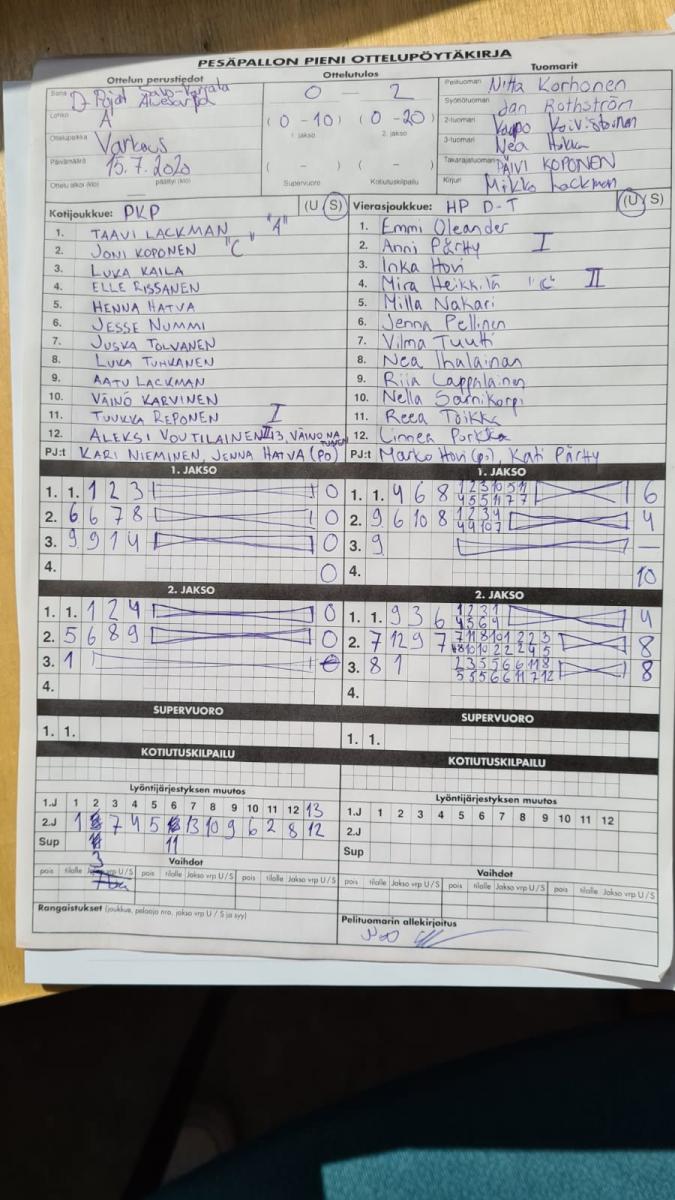 PESÄPALLON PIENI OTTELUPÖYTÄKIRJA
Ottelun perustiedot
Ottelutulos
Tuomarit
Sarja D-Pojat Savo-Karjala
Aluesarja
Lohko A
Ottelupaikka Varkaus
Päivämäärä 15.7.2020
Ottelu alkoi (klo) päättyi (klo)
0 - 2
(0 - 10) (0 - 20)
1. jakso 2. jakso
( - ) ( - )
Supervuoro Kotiutuskilpailu
Pelituomari Niita Korhonen
Syöttötuomari Jan Rothström
2-tuomari Kaapo Koivistoinen
3-tuomari Nea
Takarajatuomari PÄIVI KOPONEN
Kirjuri Mikko Lackman
Kotijoukkue: PKP (U S)
1. TAAVI LACKMAN "A"
2. JONI KOPONEN "C"
3. LUKA KAILA
4. ELLE RISSANEN
5. HENNA HATVA
6. JESSE NUMMI
7. JUSKA TOLVANEN
8. LUKA TUHKANEN
9. AATU LACKMAN
10. VÄINÖ KARVINEN
11. TUUKKA REPONEN I
12. ALEKSI VOUTILAINEN II 13. VÄINÖ
PJ:t KARI NIEMINEN, JENNA HATVA (PO)
Vierasjoukkue: HP D-T (U S)
1. Emmi Oleander
2. Anni Pärtty I
3. Inka Hovi
4. Mira Heikkilä "C" II
5. Milla Nakari
6. Jenna Pellinen
7. Vilma Tuuti
8. Nea Ihalainen
9. Riia Lappalainen
10. Nella Sarnikorpi
11. Reea Toikka
12. Linnea Purkka
PJ:t Marko Hovi (pj), Kati Pärtty
1. JAKSO
1. 1. 1 2 3 0
2. 6 6 7 8 0
3. 9 9 1 4 0
4. 0
1. JAKSO
1. 1. 4 6 8 1 2 3 10 5 11
4 5 5 11 7 7 6
2. 9 6 10 8 1 2 3 4
4 9 10 7 4
3. 9 —
4. 10
2. JAKSO
1. 1. 1 2 4 0
2. 5 6 8 9 0
3. 1
4.
2. JAKSO
1. 1. 9 3 6 1 2 3 1
4 5 6 9 4
2. 7 12 9 7 7 11 8 10 1 2 2 3
4 8 10 10 2 2 2 4 5 8
3. 8 1 2 3 5 5 6 6 11 8
5 5 5 6 6 11 7 12 8
4.
SUPERVUORO
1. 1.
SUPERVUORO
1. 1.
KOTIUTUSKILPAILU
KOTIUTUSKILPAILU
Lyöntijärjestyksen muutos
1.J 1 2 3 4 5 6 7 8 9 10 11 12 13
2.J 1 7 4 5 13 10 9 6 2 8 12
Sup 11
3
Lyöntijärjestyksen muutos
1.J 1 2 3 4 5 6 7 8 9 10 11 12
2.J
Sup
Vaihdot
pois tilalle Jakso vrp U/S pois tilalle Jakso vrp U/S pois tilalle Jakso vrp U/S
Vaihdot
pois tilalle Jakso vrp U/S pois tilalle Jakso vrp U/S pois tilalle Jakso vrp U/S
Rangaistukset (joukkue, pelaaja nro, jakso vrp U / S ja syy)
Pelituomarin allekirjoitus